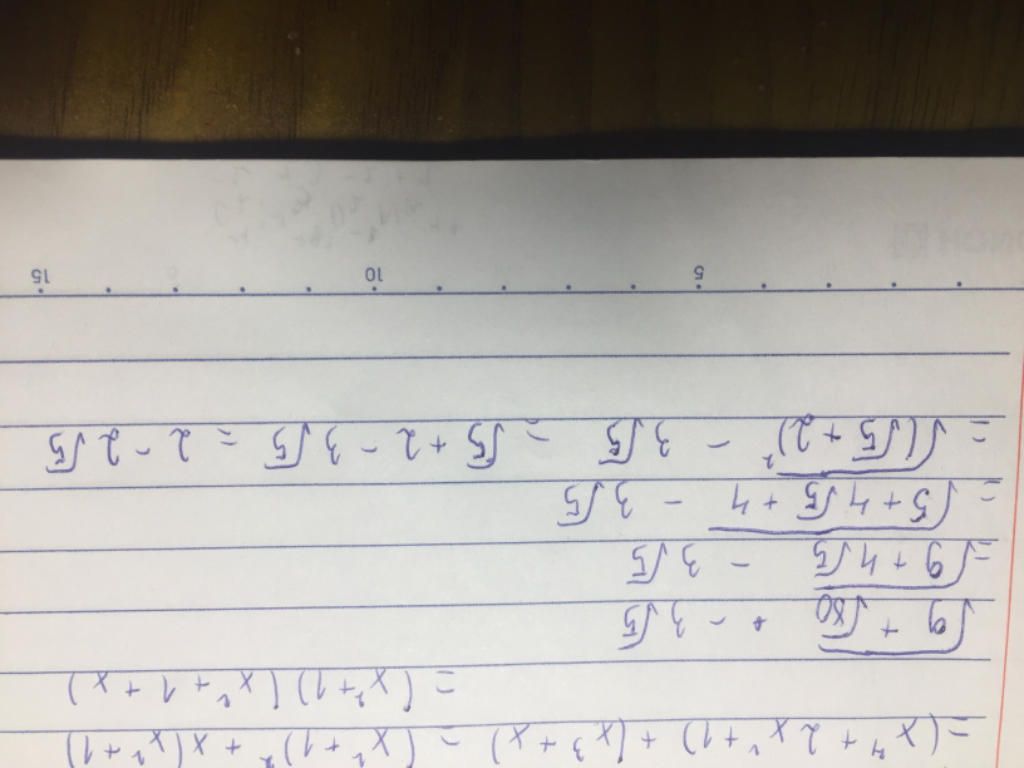 = (x⁴ + 2x² + 1) + (x³ + x) = (x² + 1)² + x(x² + 1)
= (x² + 1)(x² + 1 + x)
√(9 + √80) - 3√5
= √(9 + 4√5) - 3√5
= √(5 + 4√5 + 4) - 3√5
= √((√5 + 2)²) - 3√5 = √5 + 2 - 3√5 = 2 - 2√5
5 10 15